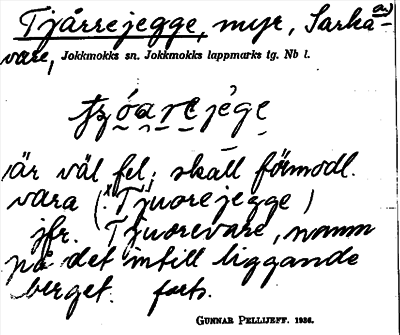 Tjårrejegge, myr, Sarka=
vare, Jokkmokks sn. Jokkmokks lappmarks tg. Nb l.
är väl fel; skall förmodl.
vara (Tjuorejegge)
jfr. Tjuorevare, namn
på det intill liggande
berget. forts.
GUNNAR PELLIJEFF. 1936.